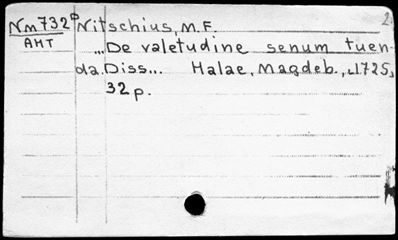 Nm732ᵖ Nitschius, M.F. 2
AHT ...De valetudine senum tuen-
da. Diss... Halae, Magdeb., 1725,
32 p.